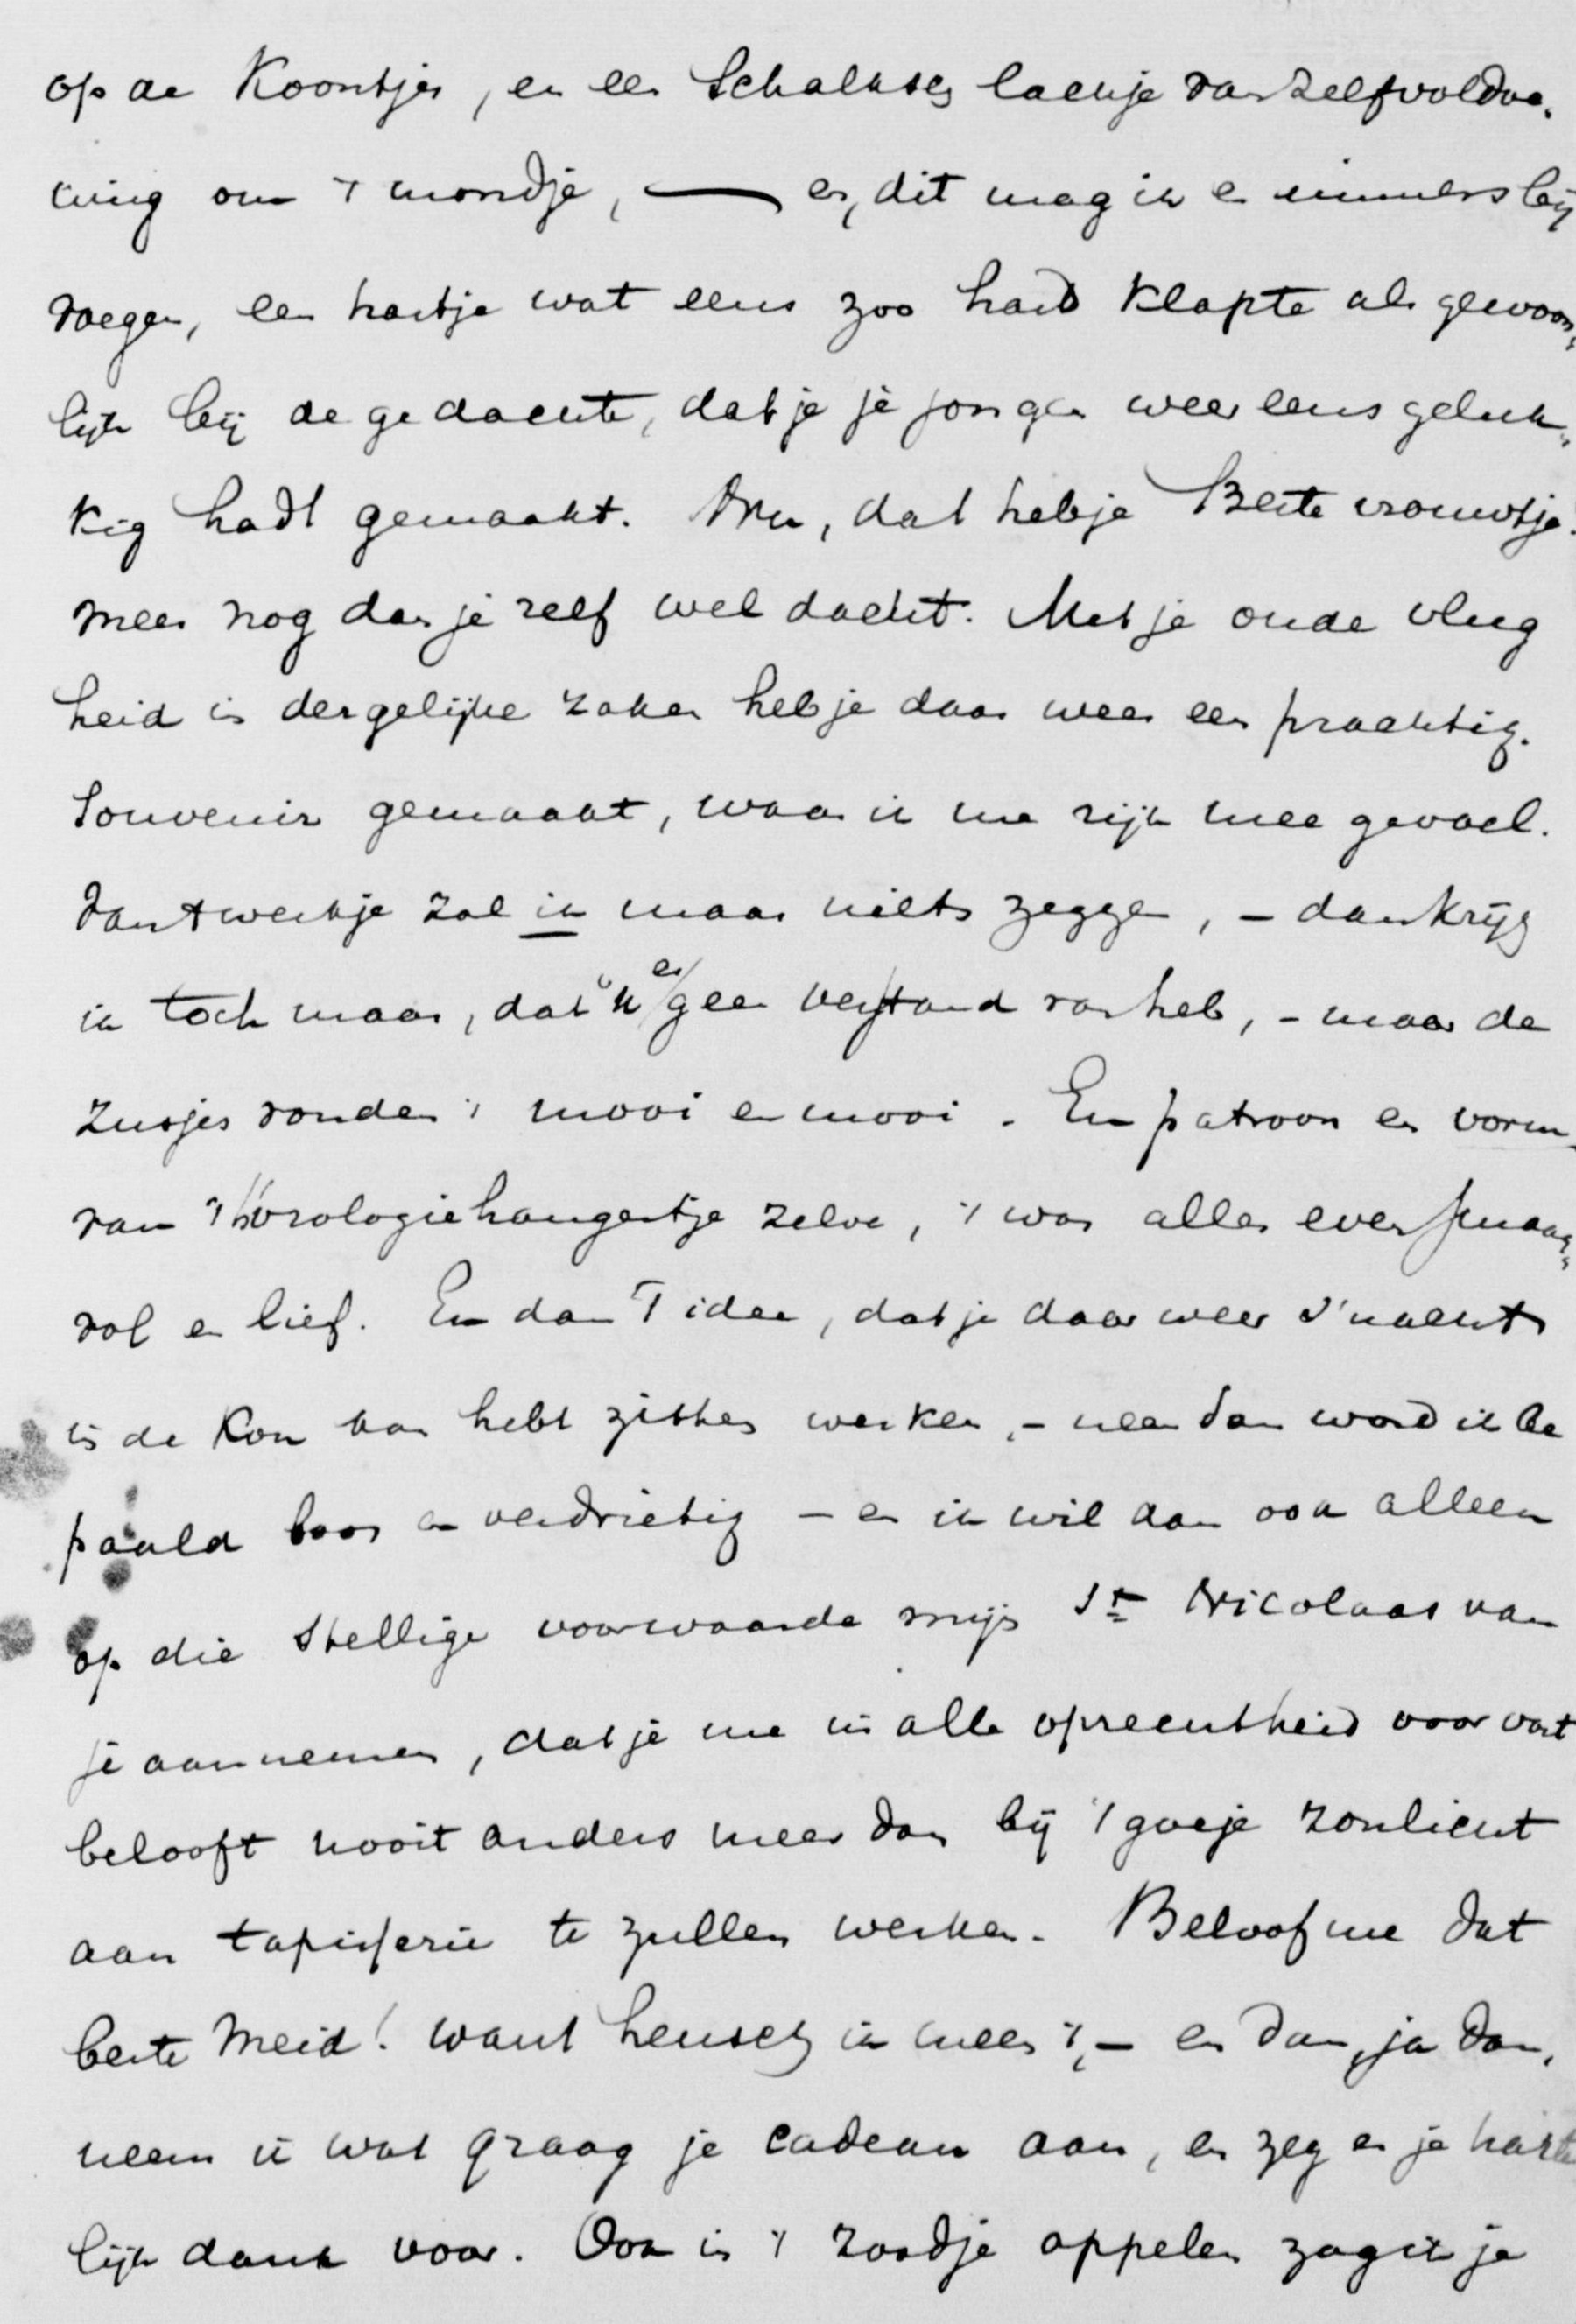 op de Koontjes, en een Schalksch lachje van zelfvoldoe„
ning om 't mondje, — en, dit mag ik er immers bij
voegen, een hartje wat eens zoo hard klopte als gewoon„
lijk bij de gedachte, dat je je jongen weer eens geluk„
kig hadt gemaakt. Nu, dat heb je Beste vrouwtje!
meer nog dan je zelf wel dacht. Met je oude vlug
heid in dergelijke zaken heb je daar weer een prachtig.
Souvenir gemaakt, waar ik me rijk mee gevoel.
Van 't werkje zal ik maar niets zeggen, – dan krijg
ik toch maar, dat 'k er geen verstand van heb, – maar de
Zusjes vonden 't mooi en mooi. En patroon en vorm
van 't horologiehangertje zelve, 't was alles even smaak„
vol en lief. En dan 't idee, dat je daar weer 's nachts
in de Kou aan hebt zitten werken, – neen dan word ik be
paald boos en verdrietig – en ik wil dan ook alleen
op die stellige voorwaarde mijn St Nicolaas van
je aannemen, dat je me in alle oprechtheid voor vast
belooft nooit anders meer dan bij 't goeje zonlicht
aan tapisserie te zullen werken. Beloof me dat
beste Meid! want heusch ik meen 't, – en dan, ja dan,
neem ik wat graag je cadeau aan, en zeg er je harte
lijk dank voor. Ook in 't zoodje appelen zag ik je